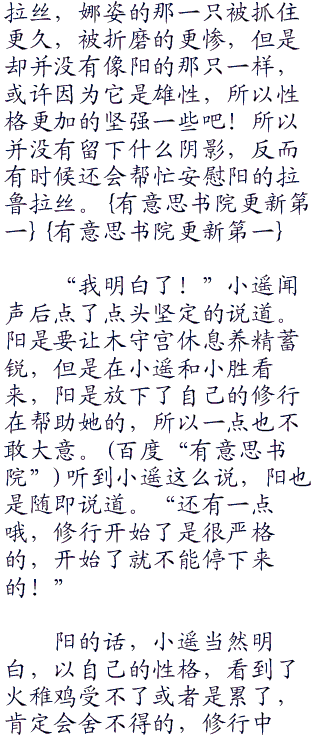 拉丝，娜姿的那一只被抓住
更久，被折磨的更惨，但是
却并没有像阳的那只一样，
或许因为它是雄性，所以性
格更加的坚强一些吧！所以
并没有留下什么阴影，反而
有时候还会帮忙安慰阳的拉
鲁拉丝。{有意思书院更新第
一} {有意思书院更新第一}
“我明白了！”小遥闻
声后点了点头坚定的说道。
阳是要让木守宫休息养精蓄
锐，但是在小遥和小胜看
来，阳是放下了自己的修行
在帮助她的，所以一点也不
敢大意。(百度“有意思书
院”)听到小遥这么说，阳也
是随即说道。“还有一点
哦，修行开始了是很严格
的，开始了就不能停下来
的！”
阳的话，小遥当然明
白，以自己的性格，看到了
火稚鸡受不了或者是累了，
肯定会舍不得的，修行中